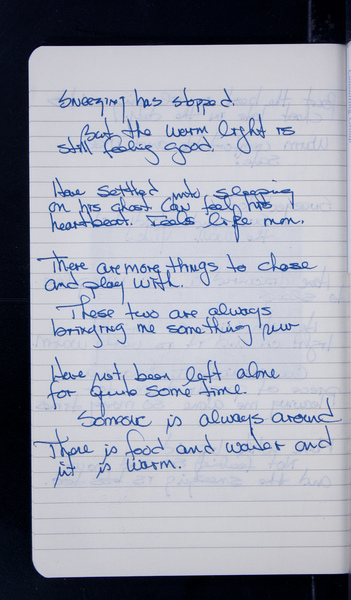 Sneezing has stopped.
But the warm light is
still feeling good.
Have settled into sleeping
on his chest. Can feel his
heartbeat. Feels like mom.
There are more things to chase
and play with.
These two are always
bringing me something new
Have not been left alone
for quite some time.
Someone is always around
There is food and water and
it is warm.